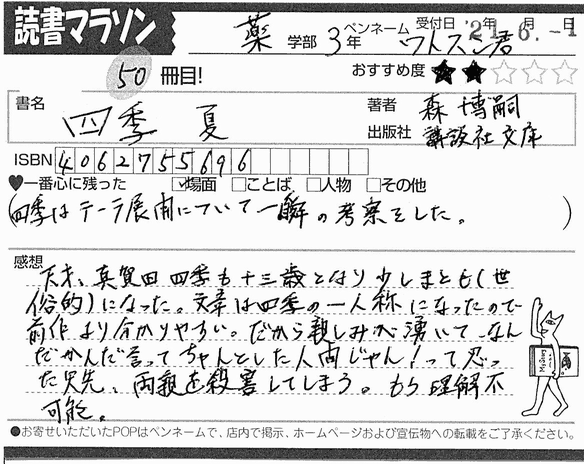 読書マラソン
薬 学部 3年 ペンネーム ワトスン君 受付日 21年 6月 -1日
50 冊目! おすすめ度 ★★☆☆☆
書名 四季 夏
著者 森 博嗣
出版社 講談社文庫
ISBN 4062755696
♥一番心に残った ☑場面 □ことば □人物 □その他
(四季はテーラ展開について一瞬の考察をした。)
感想
天才、真賀田四季も十三歳となり少しまとも(世
俗的)になった。文章は四季の一人称になったので
前作より分かりやすい。だから親しみが湧いて、なん
だかんだ言ってちゃんとした人間じゃん!って思っ
た矢先、両親を殺害してしまう。もう理解不
可能。
●お寄せいただいたPOPはペンネームで、店内で掲示、ホームページおよび宣伝物への転載をご了承ください。